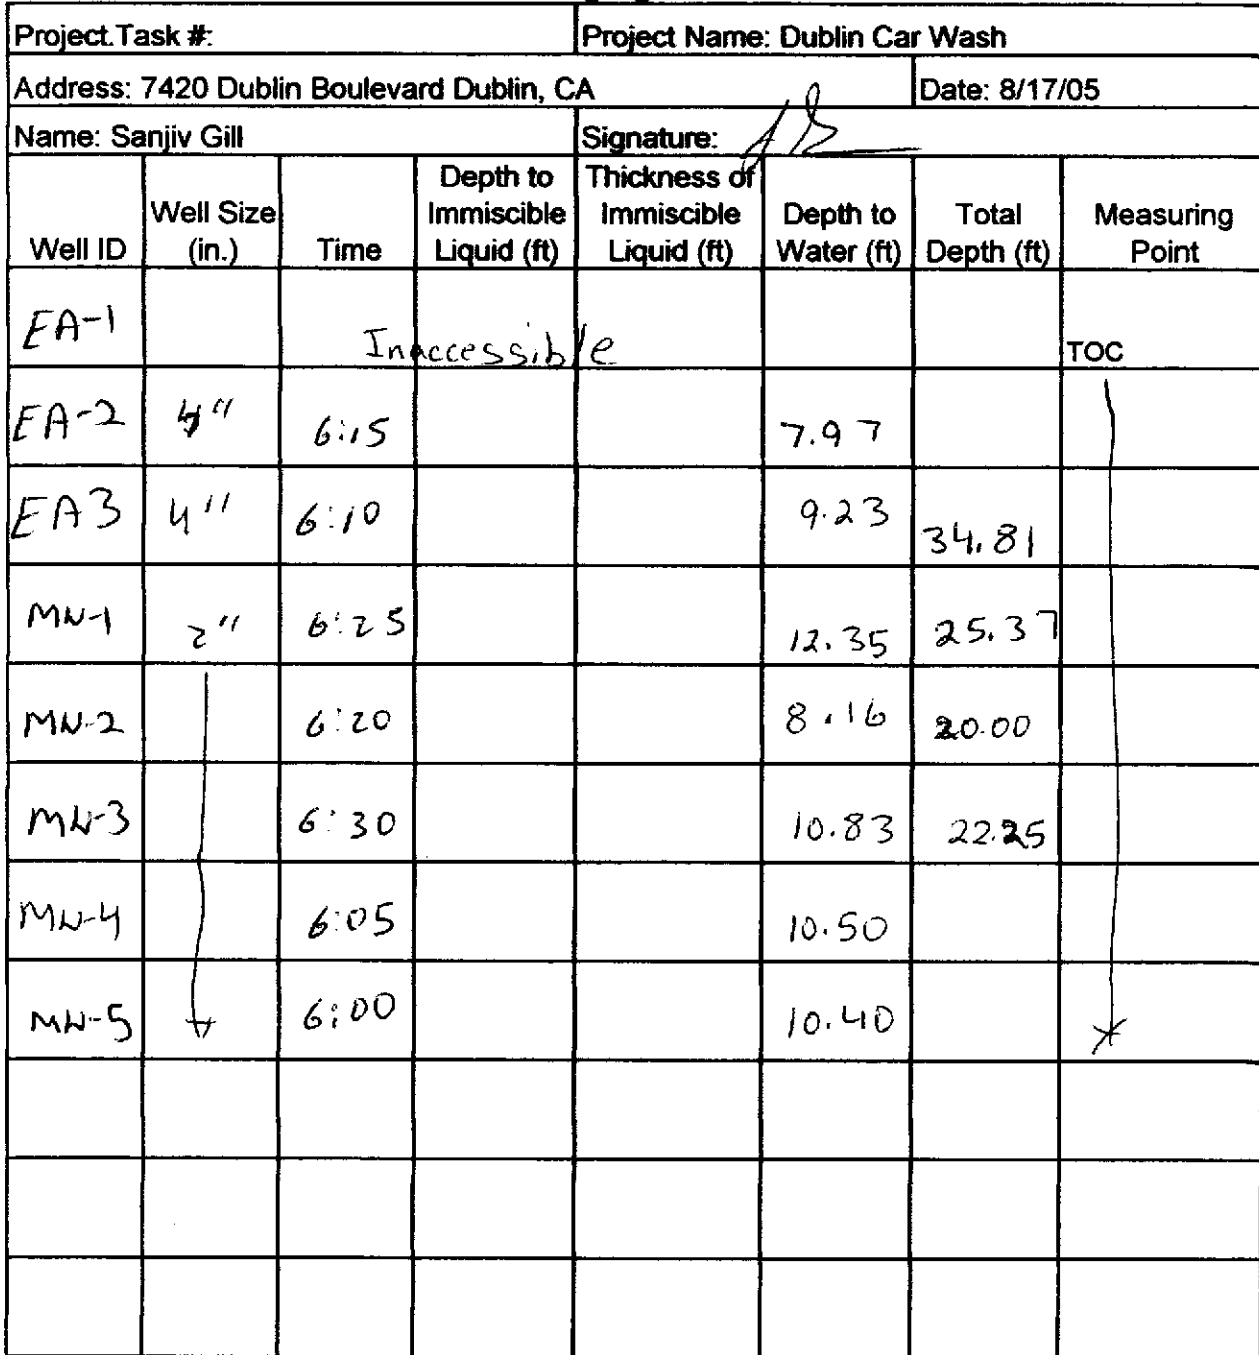 Project.Task #: Project Name: Dublin Car Wash
Address: 7420 Dublin Boulevard Dublin, CA Date: 8/17/05
Name: Sanjiv Gill Signature:
Well ID Well Size (in.) Time Depth to Immiscible Liquid (ft) Thickness of Immiscible Liquid (ft) Depth to Water (ft) Total Depth (ft) Measuring Point
EA-1 Inaccessible TOC
EA-2 4" 6:15 7.97
EA3 4" 6:10 9.23 34.81
MW-1 2" 6:25 12.35 25.37
MW-2 6:20 8.16 20.00
MW-3 6:30 10.83 22.25
MW-4 6:05 10.50
MW-5 6:00 10.40